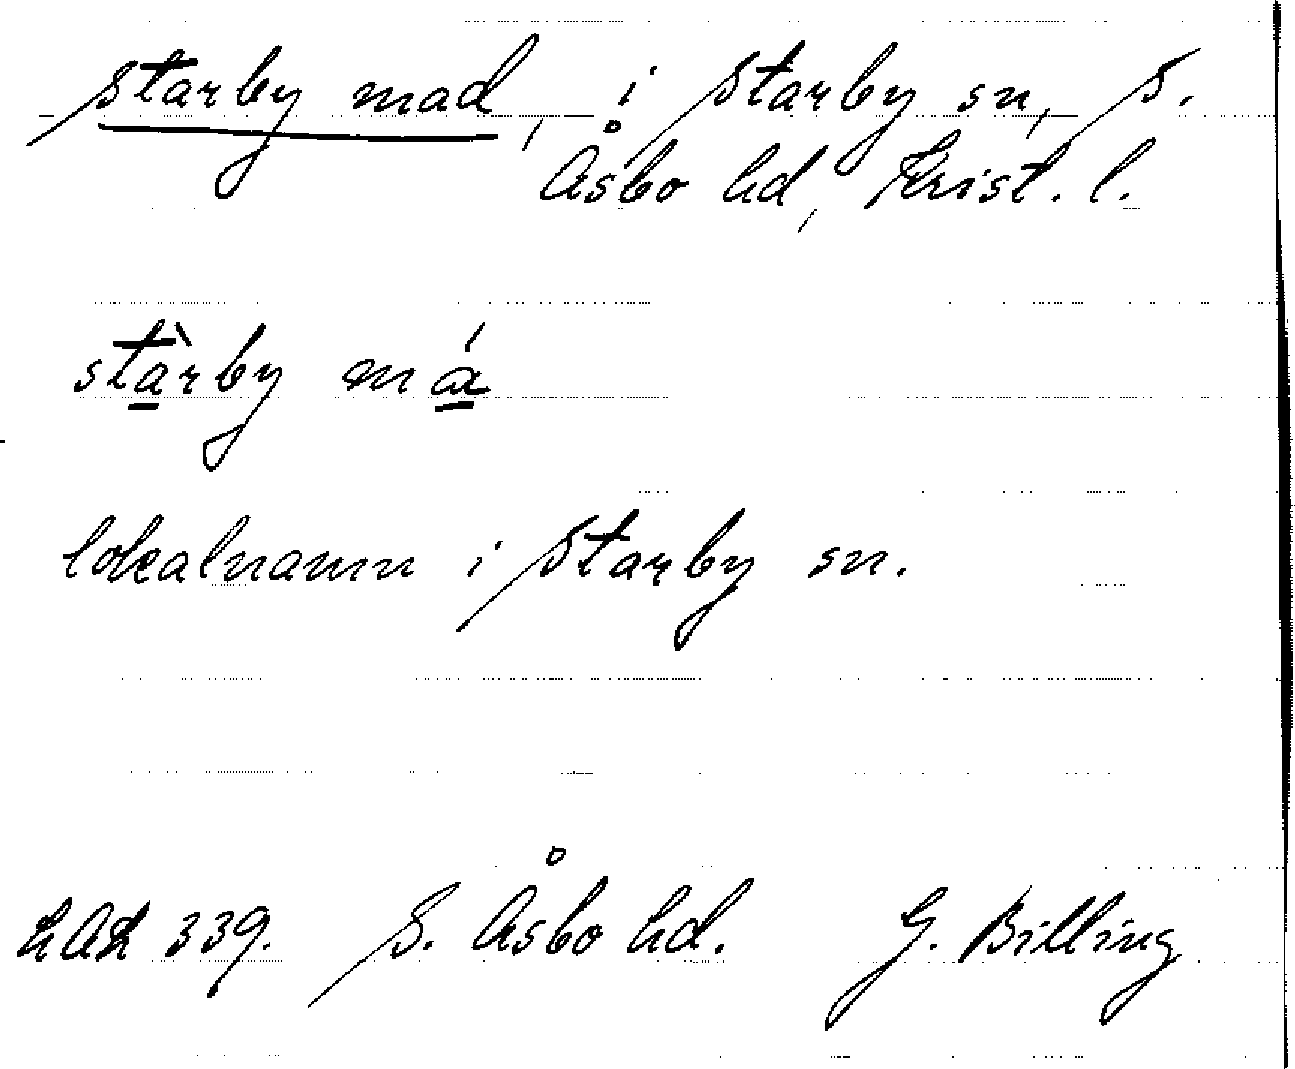 Starby mad, i Starby sn, S.
Åsbo hd, Krist. l.
stàrby má
lokalnamn i Starby sn.
LAL 339. S. Åsbo hd. G. Billing